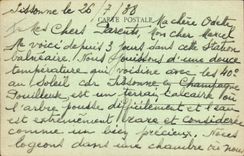 Sissonne le 26/7/38
CARTE POSTALE
Ma chère Odette,
Mes Chers Parents, Mon cher Marcel
Me voici depuis 3 jours dans cette station
balnéaire. Nous jouissons d'une douce
température qui voisine avec les 40°
au soleil car Sissonne le Champagne
Pouilleux est un terrain calcaire où
l'arbre pousse difficilement et l'eau
est extrêmement rare et considérée
comme un bien précieux. Nous
logeons dans une chambre où nous